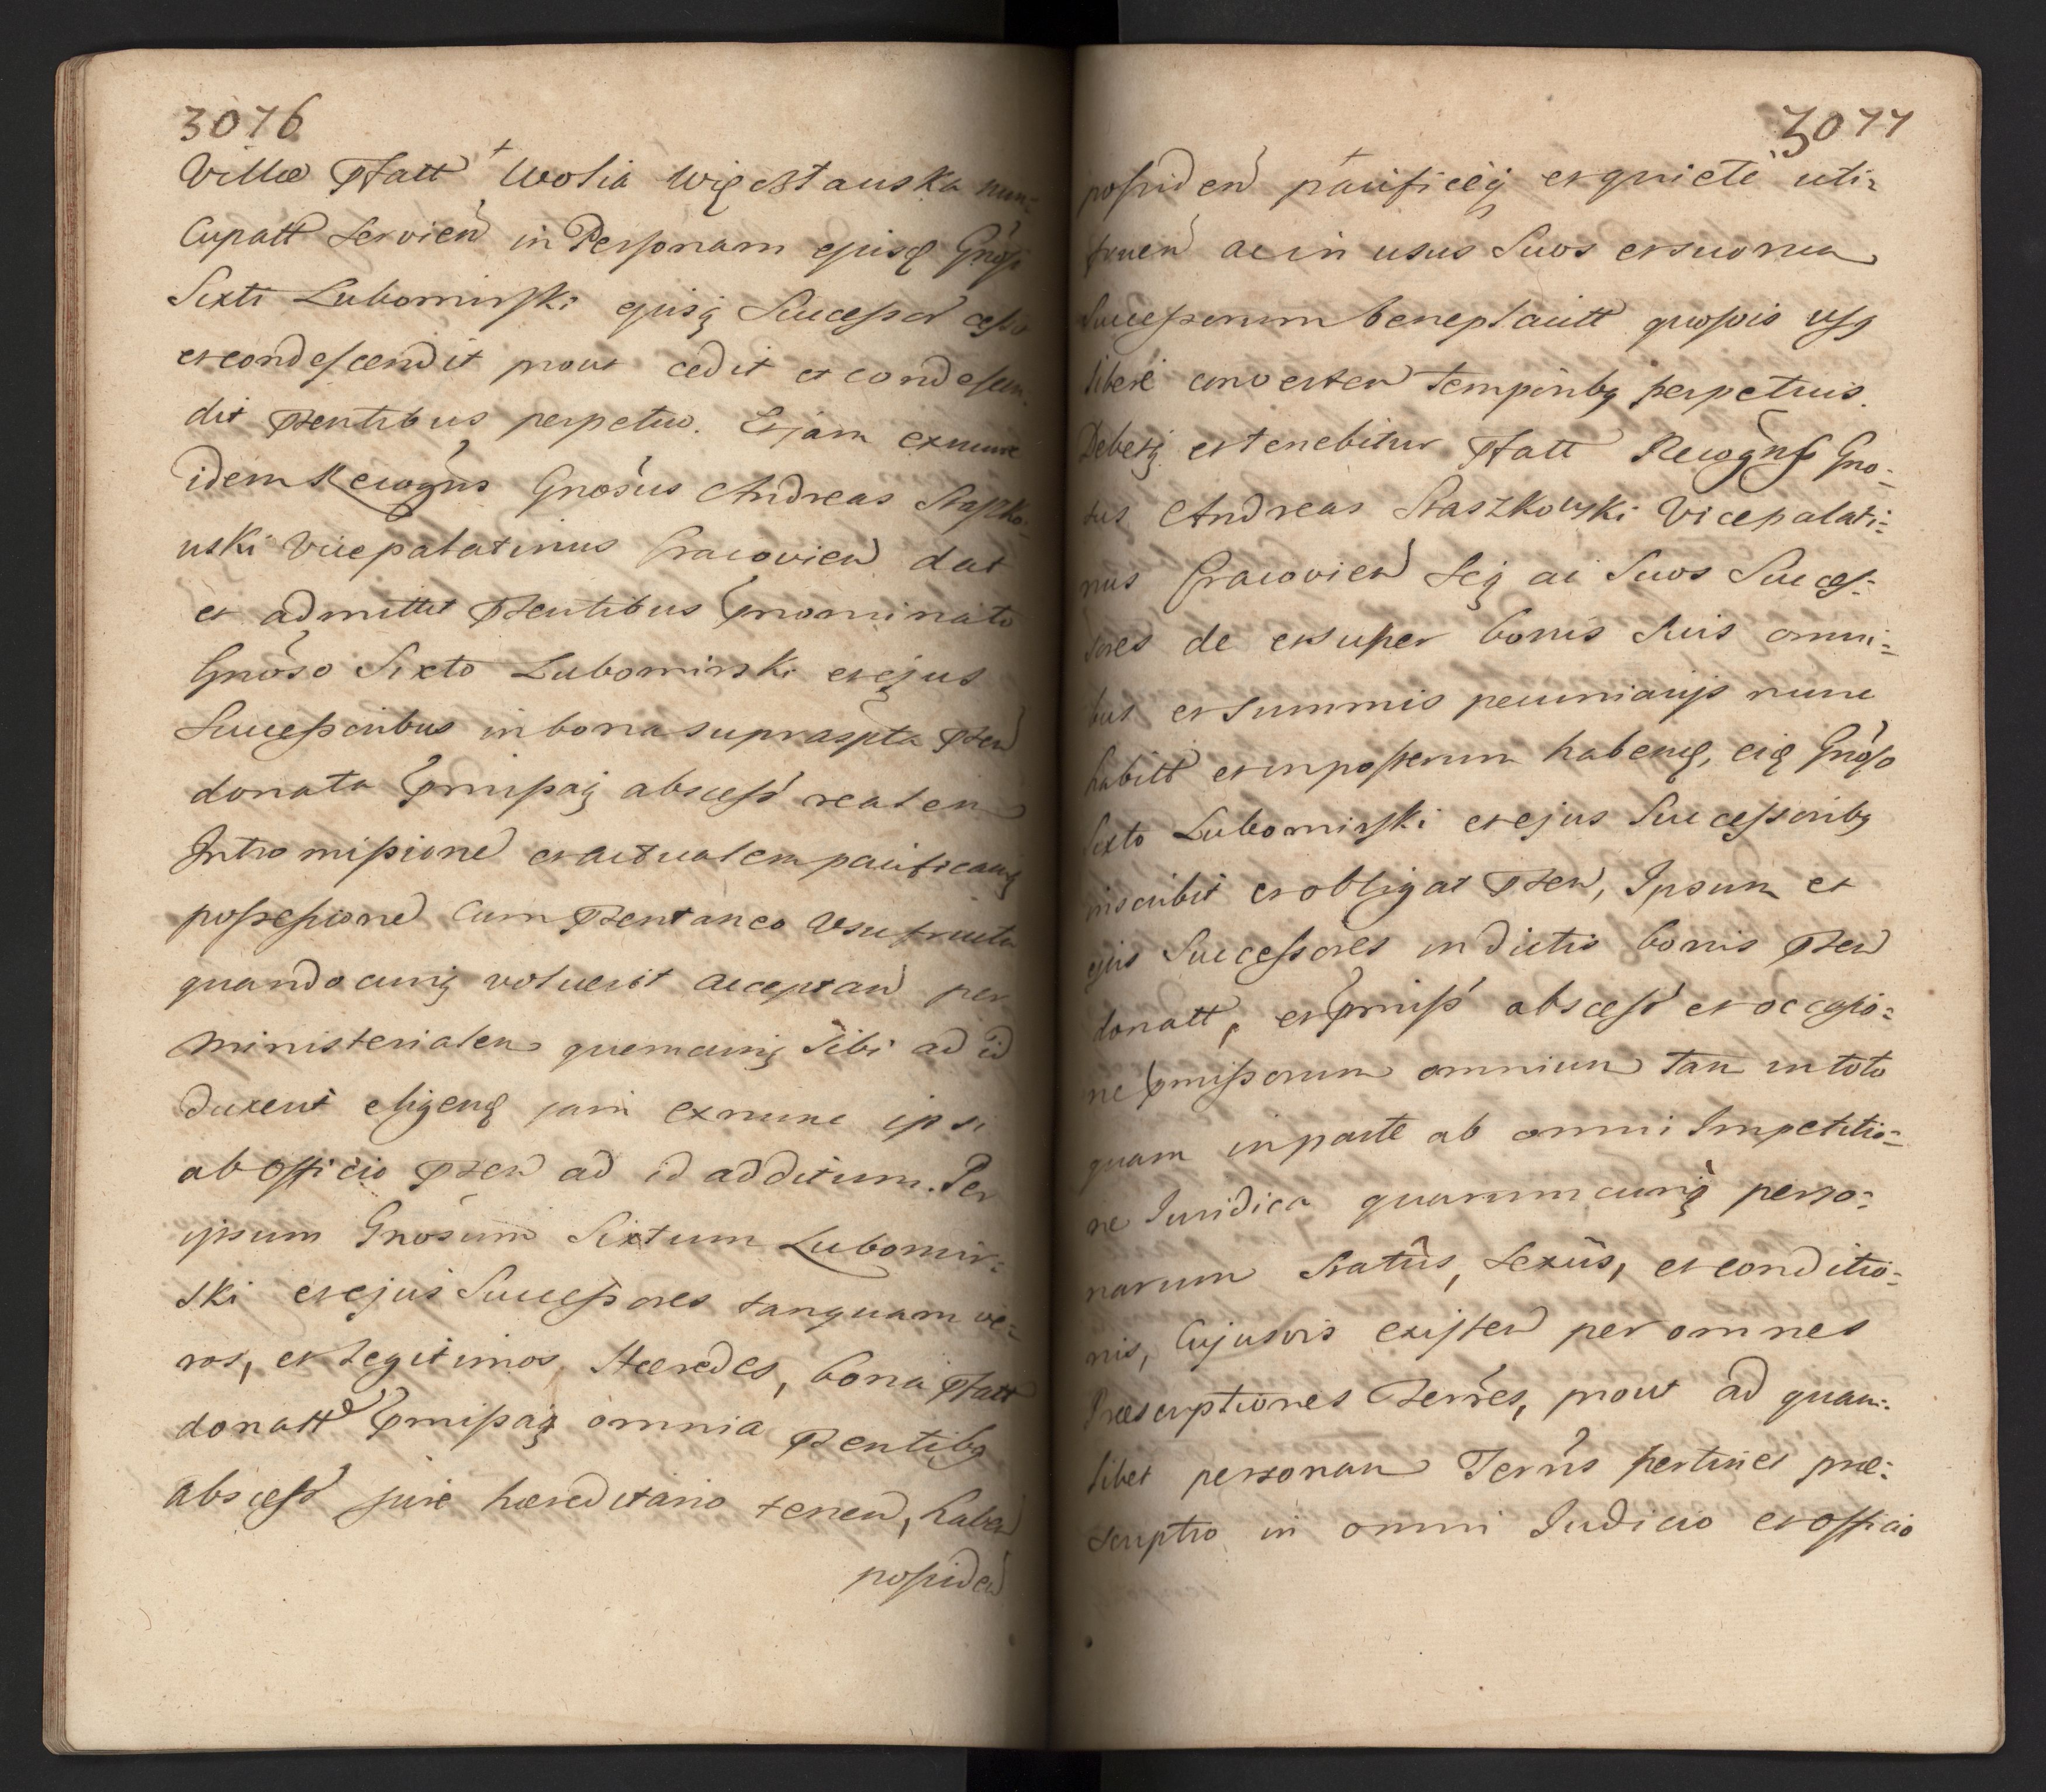 3076
Villæ Pfatt Wolia Więcstauska nun=
Cupatt Servień in Personam ejusq Gnosi
Sixti Lubomirski ejusq Successor cessit
et condescendit prout cedit et condescen
dit Pentibus perpetuo. Et jam exnunc
idem Recogns Gnosus Andreas Staszko=
uski Vicepalatinus Cracovień dat
et admittit Pentibus Pnominato
Gnoso Sixto Lubomirski et ejus
Successoribus in bona suprascpta Pteń
donata Pmissaq abscess realem
Intromissioné et actualem pacificamq
possessioné cum Pentaneo Usufructu
quandocunq voluerit acceptań per
Ministerialem quemcunq Sibi ad id
duxerit eligenq jam exnunc ipsi
ab Officio Pteń ad id additum. Per
ipsum Gnosum Sixtum Lubomir=
ski et ejus Successores tanquam ve=
ros, et legitimos Hæredes, bona Pfatt
donatt Pmissaq omnia Pentibq
abscess jure hæreditario teneń, habeń
possideń
3077
possideń pacificeq et quiete uti=
frueń ac in usus Suos et suorum
Successorum beneplacitt quosvis usq
libere converteń temporibq perpetuis.
Debetq et tenebitur Pfatt Recogns Gno=
sus Andreas Staszkowski Vicepalati=
nus Cracovień Seq ac Suos Succes=
sores de et super bonis Suis omni=
bus et summis pecuniarijs nunc
habitt et inposterum habenq, eiq Gnoso
Sixto Lubomirski et ejus Successoribq
inscribit et obligat Pteń, Ipsum et
ejus Successores in dictis bonis Pteń
donatt, et Pmiss abscess et occasio=
ne Pmissorum omnium tam in toto
quam in parte ab omni Impetitio=
ne Juridica quarumcunq perso=
narum Statûs, Sexûs, et conditio=
nis, Cujusvis existeń per omnes
Præscriptiones Terres, prout ad quam=
libet personam Terris pertinet præ=
scriptio in omni Judicio et officio